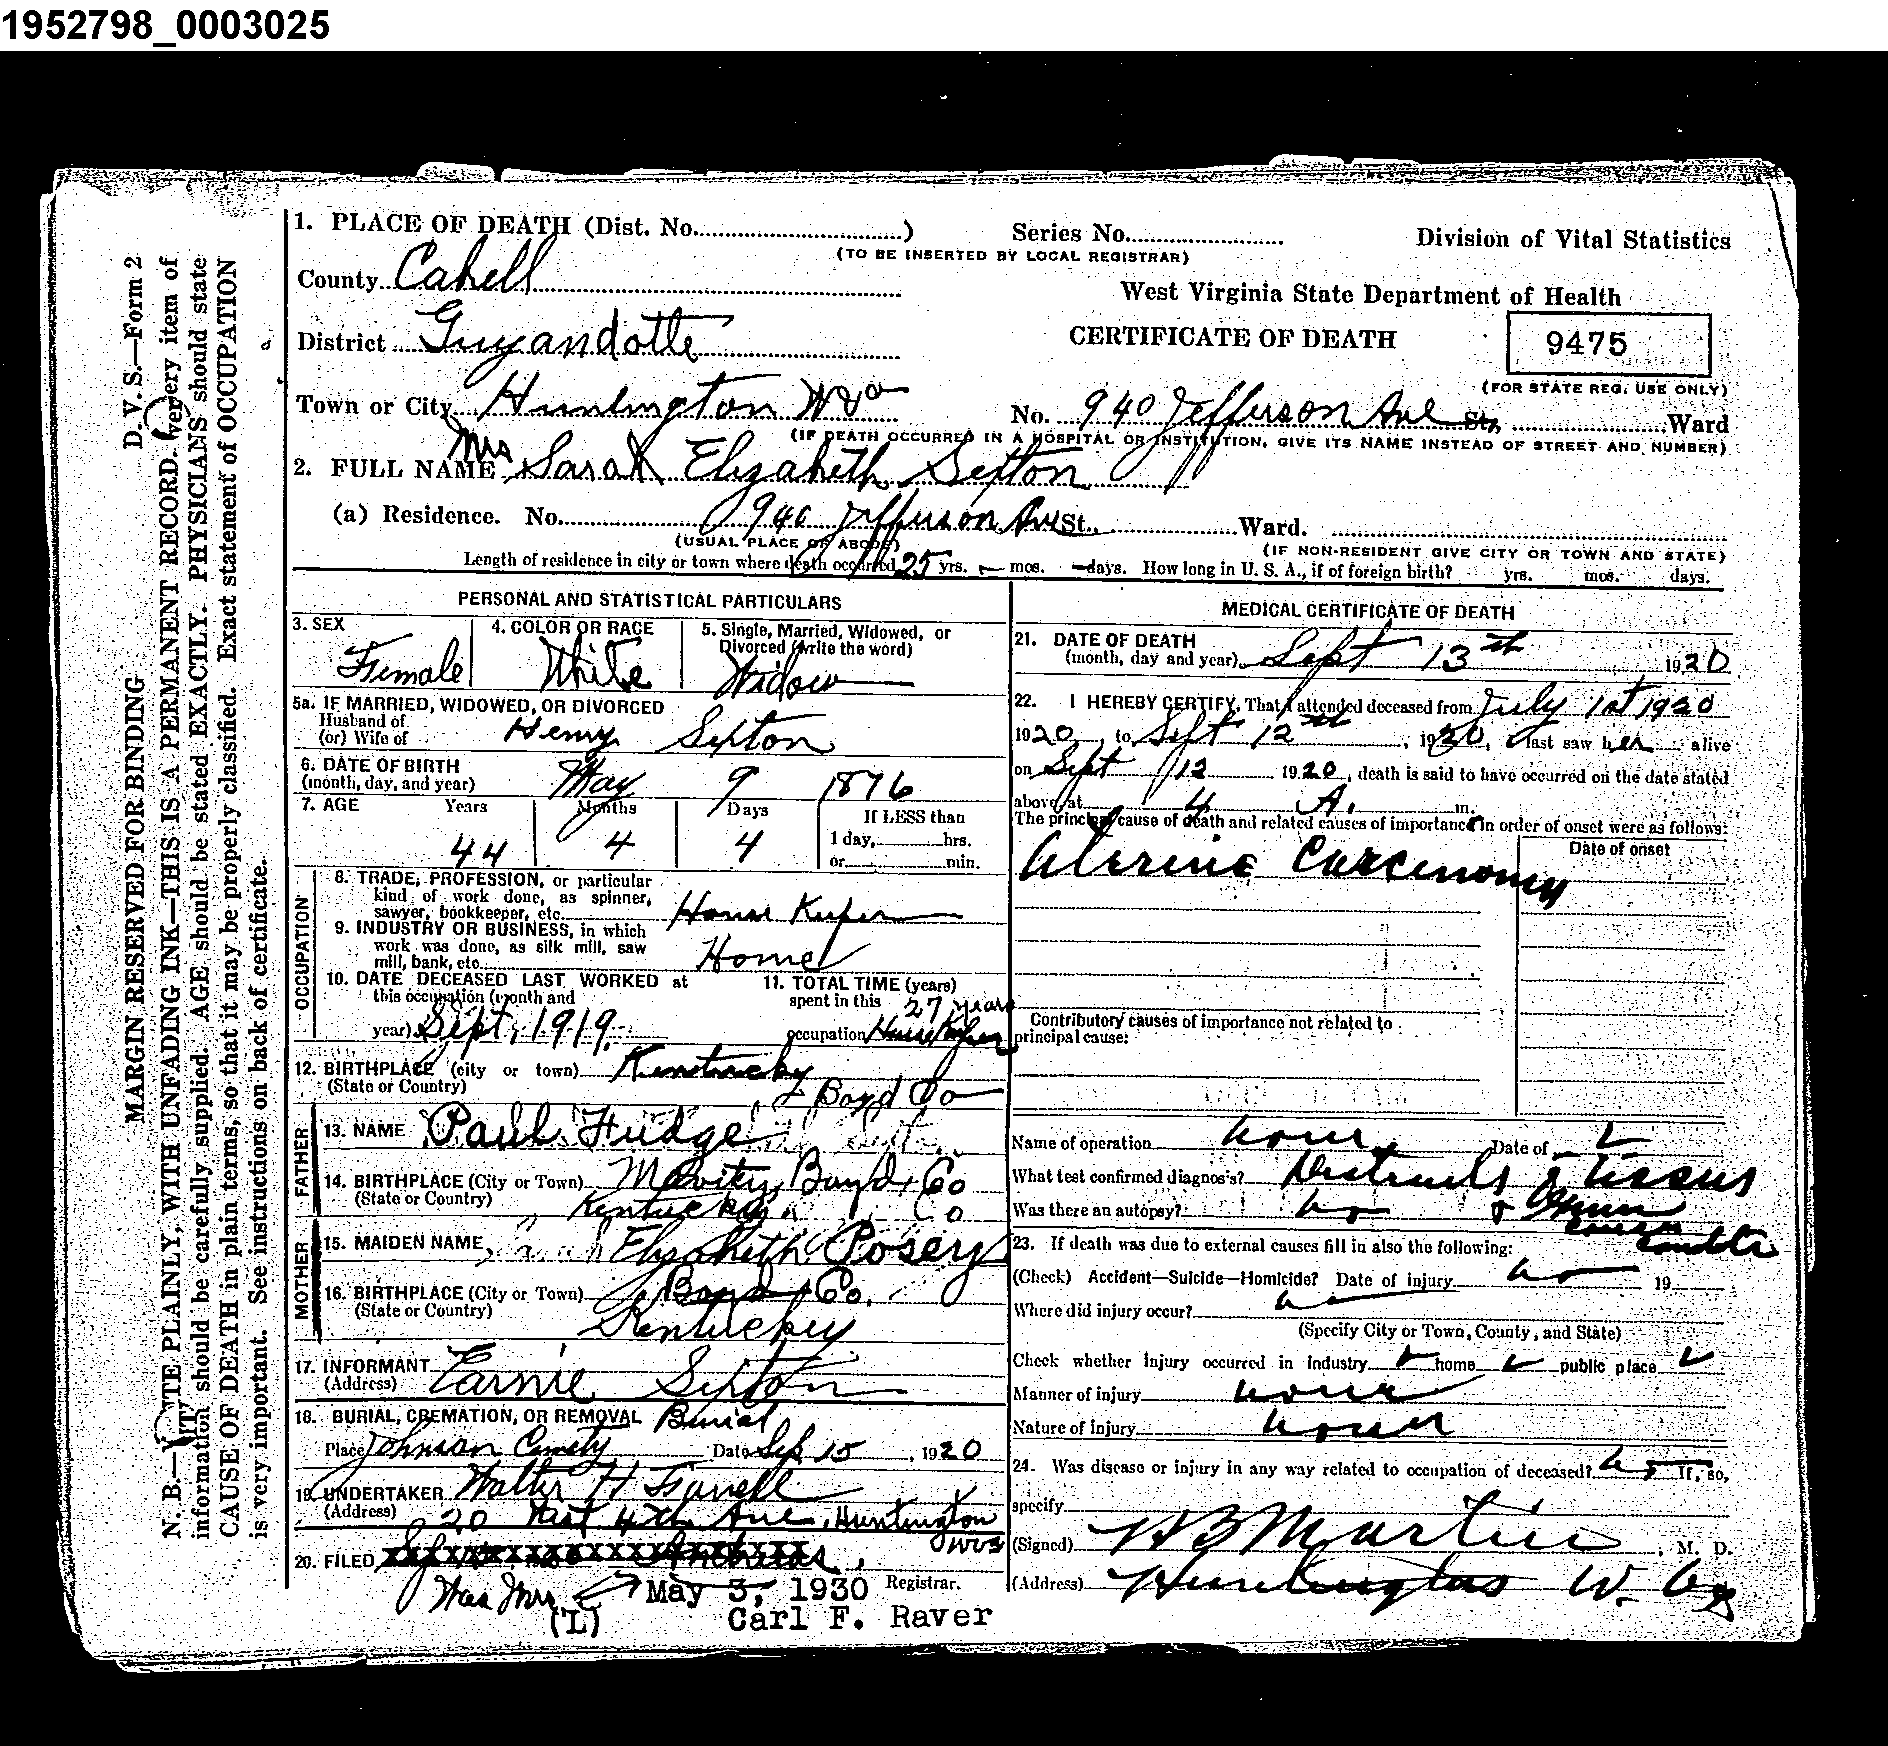 1952798_0003025
1. PLACE OF DEATH (Dist. No. )
Series No.
Division of Vital Statistics
(TO BE INSERTED BY LOCAL REGISTRAR)
County Cabell
West Virginia State Department of Health
District Guyandotte
CERTIFICATE OF DEATH
9475
(FOR STATE REG. USE ONLY)
Town or City Huntington WVa
No. 940 Jefferson Ave St. Ward
(IF DEATH OCCURRED IN A HOSPITAL OR INSTITUTION, GIVE ITS NAME INSTEAD OF STREET AND NUMBER)
2. FULL NAME Mrs Sarah Elizabeth Sexton
(a) Residence. No. 940 Jefferson Ave St. Ward.
(USUAL PLACE OF ABODE)
(IF NON-RESIDENT GIVE CITY OR TOWN AND STATE)
Length of residence in city or town where death occurred 25 yrs. — mos. — days. How long in U. S. A., if of foreign birth? yrs. mos. days.
PERSONAL AND STATISTICAL PARTICULARS
3. SEX
Female
4. COLOR OR RACE
White
5. Single, Married, Widowed, or
Divorced (write the word)
Widow
5a. IF MARRIED, WIDOWED, OR DIVORCED
Husband of
(or) Wife of Henry Sexton
6. DATE OF BIRTH
(month, day, and year) May 9 1876
7. AGE Years Months Days If LESS than
44 4 4 1 day, hrs.
or min.
OCCUPATION
8. TRADE, PROFESSION, or particular
kind of work done, as spinner,
sawyer, bookkeeper, etc. House Keeper
9. INDUSTRY OR BUSINESS, in which
work was done, as silk mill, saw
mill, bank, etc. Home
10. DATE DECEASED LAST WORKED at
this occupation (month and
year) Sept, 1919
11. TOTAL TIME (years)
spent in this 27 years
occupation House Keeper
12. BIRTHPLACE (city or town) Kentucky
(State or Country) Boyd Co
FATHER
13. NAME Paul Fudge
14. BIRTHPLACE (City or Town) Mavity, Boyd, Co
(State or Country) Kentucky. Co
MOTHER
15. MAIDEN NAME Elizabeth Posey
16. BIRTHPLACE (City or Town) Boyd Co.
(State or Country) Kentucky
17. INFORMANT Earnie Sexton
(Address)
18. BURIAL, CREMATION, OR REMOVAL Burial
Place Johnson Cemety Date Sep 15, 1920
19. UNDERTAKER Walter H
(Address) 20 West 4th Ave, Huntington
WVa
20. FILED
May 3, 1930 Registrar.
Was Mrs
(L) Carl F. Raver
MEDICAL CERTIFICATE OF DEATH
21. DATE OF DEATH
(month, day and year) Sept 13th 1920
22. I HEREBY CERTIFY, That I attended deceased from July 1st 1920
1920, to Sept 12th, 1920, I last saw her alive
on Sept 12 1920, death is said to have occurred on the date stated
above, at 4 A. m.
The principal cause of death and related causes of importance in order of onset were as follows:
Date of onset
Uterine Carcinoma
Contributory causes of importance not related to
principal cause:
Name of operation none Date of
What test confirmed diagnosis? of tissues
Was there an autopsy? no
23. If death was due to external causes fill in also the following:
(Check) Accident—Suicide—Homicide? Date of injury no 19
Where did injury occur? no
(Specify City or Town, County, and State)
Check whether injury occurred in industry home public place
Manner of injury none
Nature of injury none
24. Was disease or injury in any way related to occupation of deceased? no If, so,
specify
(Signed) HB Martin, M. D.
(Address) Huntington W. Va
MARGIN RESERVED FOR BINDING
D. V. S.—Form 2
N. B.—WRITE PLAINLY, WITH UNFADING INK—THIS IS A PERMANENT RECORD. Every item of
information should be carefully supplied. AGE should be stated EXACTLY. PHYSICIANS should state
CAUSE OF DEATH in plain terms, so that it may be properly classified. Exact statement of OCCUPATION
is very important. See instructions on back of certificate.